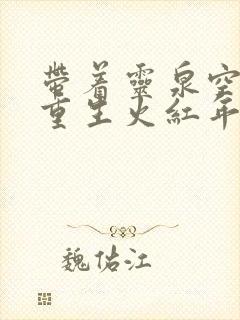 带着靈泉空
重生火紅年
魏佑江